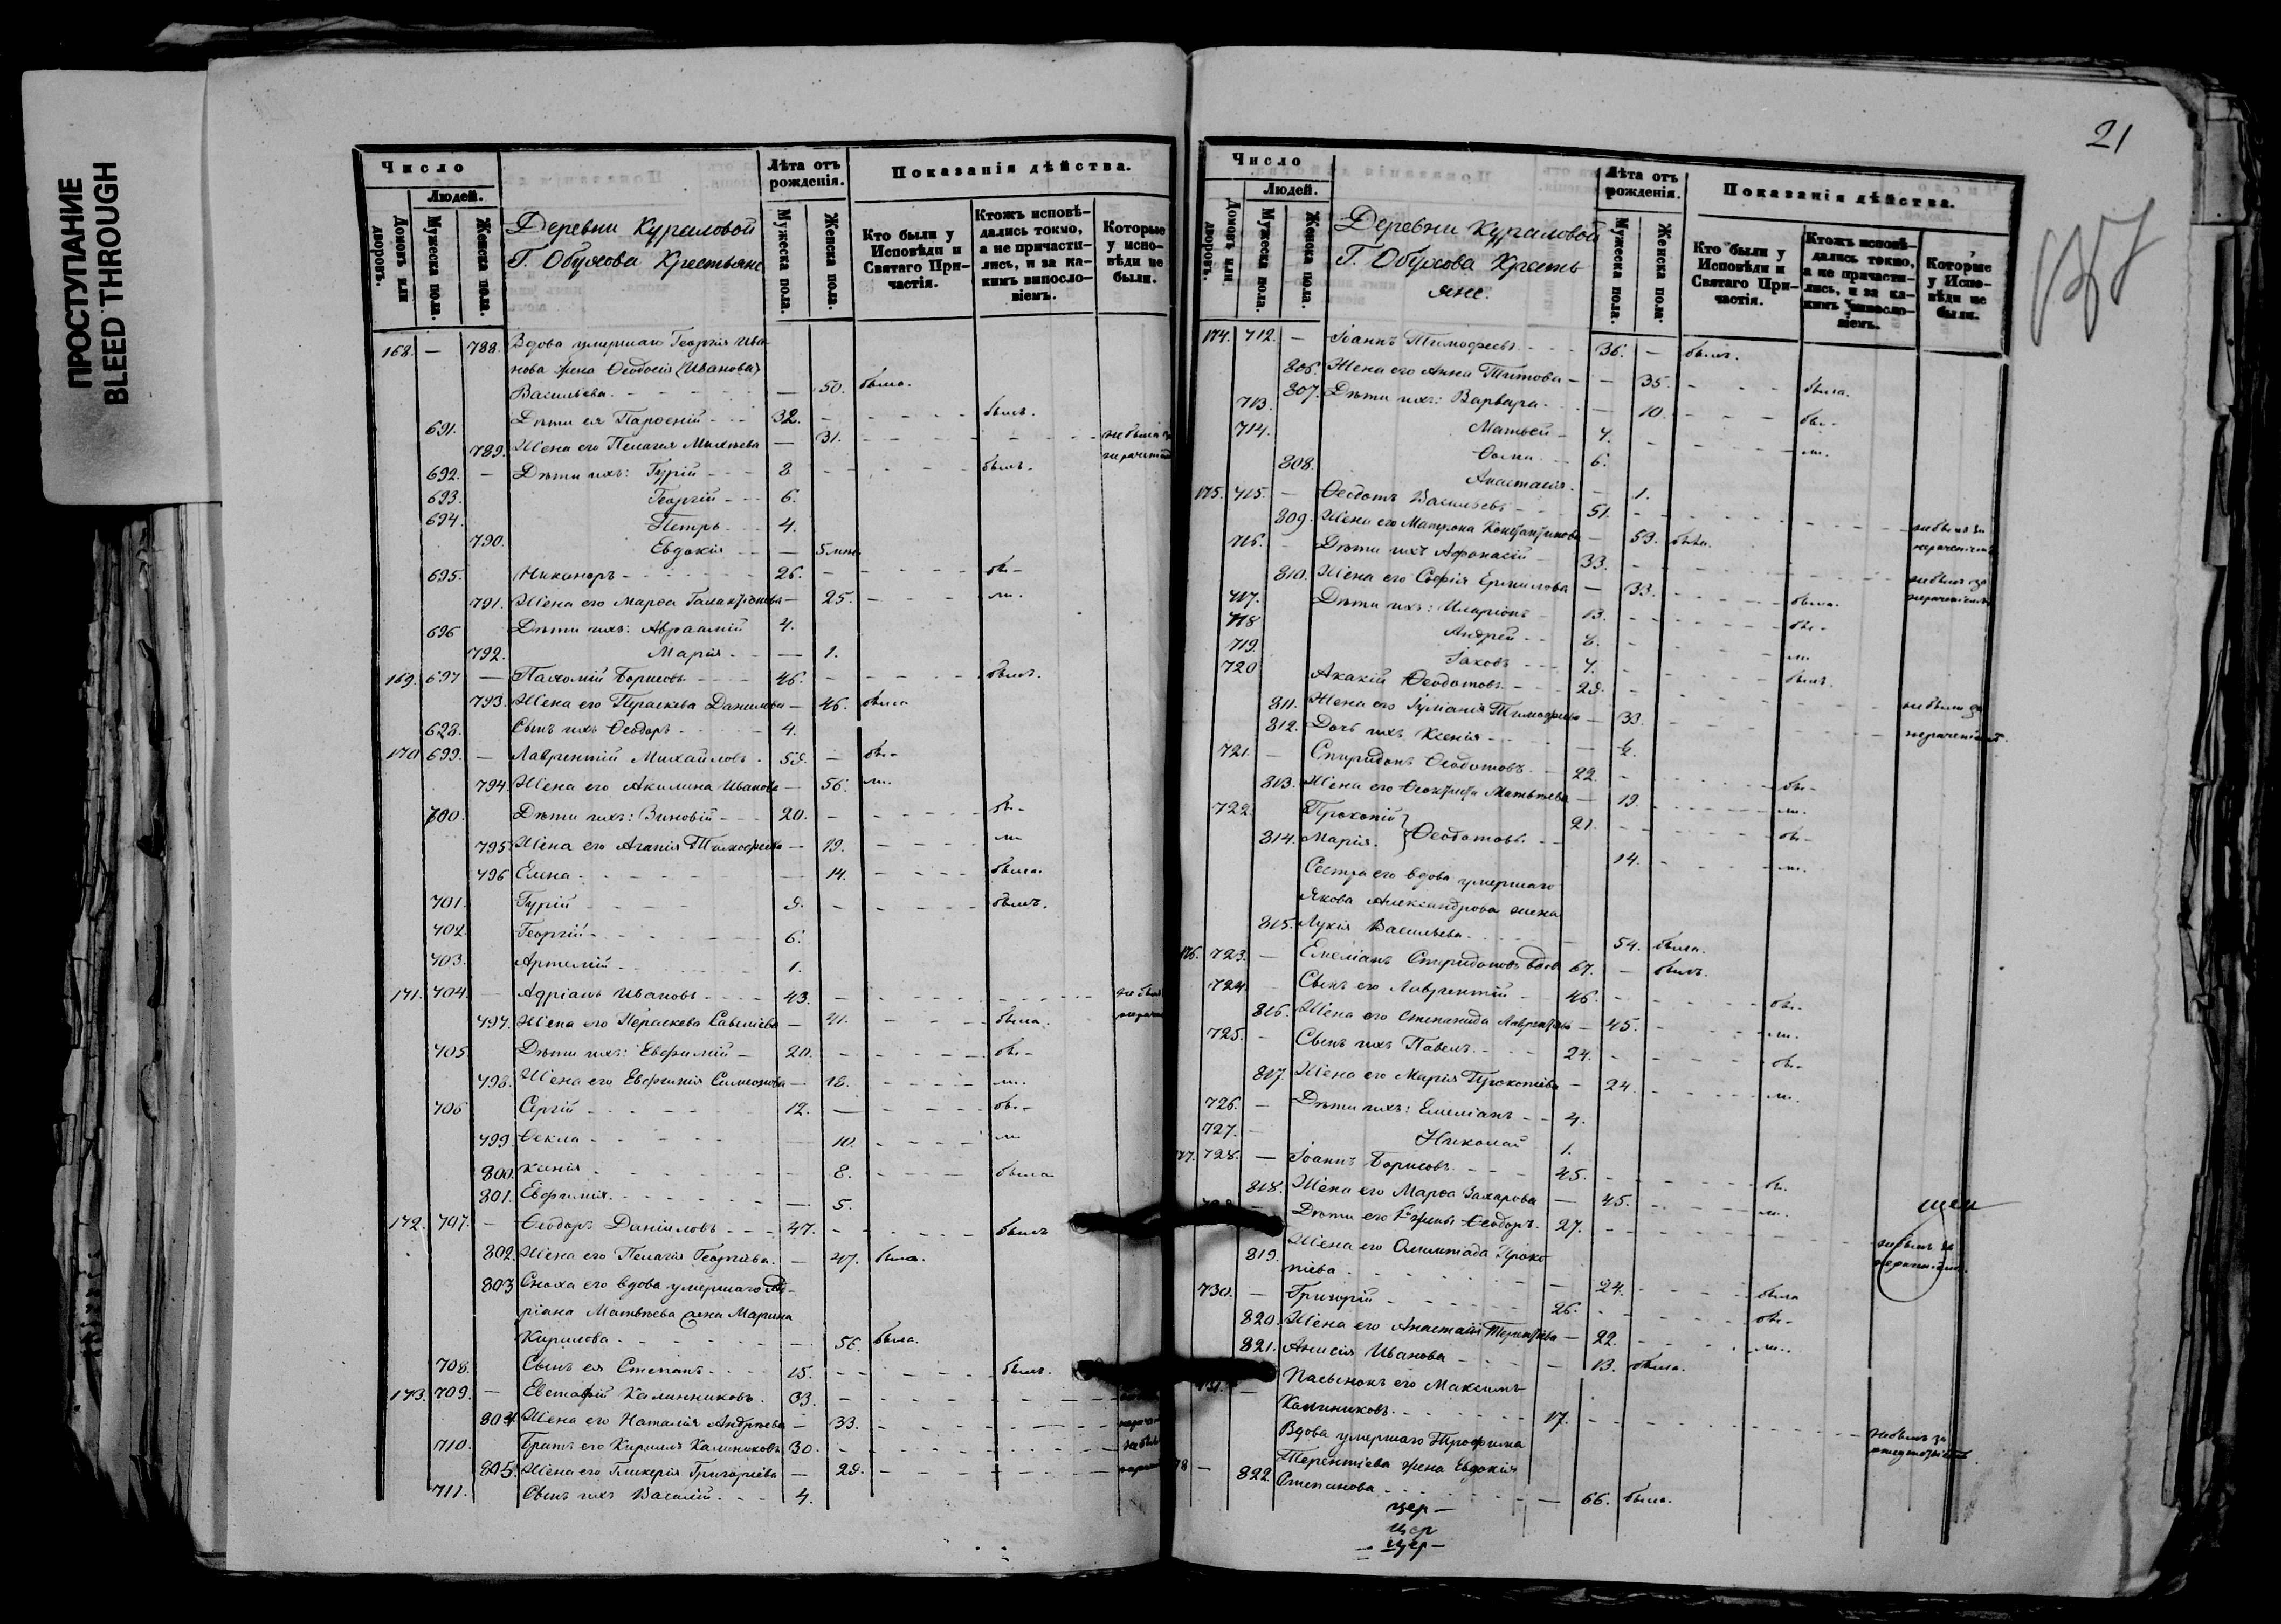 ПРОСТУПАНИЕ
BLEED THROUGH
Число
Людей.
Домовъ или дворовъ.
Мужеска пола.
Женска пола.
Деревни Кургаловой
Г. Обухова Крестьяне
Лѣта отъ рожденія.
Мужеска пола.
Женска пола.
Показанія дѣйства.
Кто были у Исповѣди и Святаго Причастія.
Ктожъ исповѣдались токмо, а не причастились, и за какимъ винословіемъ.
Которые у исповѣди не были.
168. — 788. Вдова умершаго Георгія Ива-
нова жена Ѳеодосія (Иванова)
Васильева — 50. была.
691. Дѣти ея Парѳеній 32. былъ.
789. Жена его Пелагея — 31. не была
692. — Дѣти ихъ: Гурій 8. былъ.
693. Георгій 6.
694. Петръ 4.
790. Евдокія — 5 мѣс.
695. Никаноръ 26. бы-
791. Жена его Марѳа Галактіонова — 25. ла.
696 Дѣти ихъ: Авраамій 4.
792. Марія — 1.
169. 697 — Пахомій Борисовъ 46. былъ.
793. Жена его Параскева Данилова — 46. была
698. Сынъ ихъ Ѳеодоръ 4.
170 699. — Лаврентій Михайловъ 59. — бы-
794. Жена его Акилина Иванова — 56. ли.
700. Дѣти ихъ: Зиновій 20. бы-
795. Жена его Агапія Тимофеева — 19. ли
796 Елена — 14. была.
701. Гурій 9. былъ.
702. Георгій 6.
703. Артемій 1.
171. 704. — Адріанъ Ивановъ 43. не былъ
797. Жена его Параскева Савельева — 41. была.
705. Дѣти ихъ: Евфимій 20. бы-
798. Жена его Евфимія Симеонова — 18. ли.
706 Сергій 12. — бы-
799. Ѳекла — 10. ли
800. Ксенія 8. была
801. Евфимія — 5.
172. 707. — Ѳеодоръ Даниловъ 47. былъ
802. Жена его Пелагія Георгіева. — 47. была.
803 Сноха его вдова умершаго Ад-
ріана Матвѣева жена Марина
Кирилова — 56. была.
708. Сынъ ея Степанъ 15. былъ.
173. 709. — Евстафій Калинниковъ. 33.
804 Жена его Наталія Андрѣева — 33.
710. Братъ его Кирилъ Калиниковъ 30.
805. Жена его Гликерія Григорьева — 29.
711. Сынъ ихъ Василій 4.
21
Число
Людей.
Домовъ или дворовъ.
Мужеска пола.
Женска пола.
Деревни Кургаловой
Г. Обухова Кресть
яне.
Лѣта отъ рожденія.
Мужеска пола.
Женска пола.
Показанія дѣйства.
Кто были у Исповѣди и Святаго Причастія.
Ктожъ исповѣдались токмо, а не причастились, и за какимъ винословіемъ.
Которые у Исповѣди не были.
174. 712. — Іоаннъ Тимофеевъ 36. — былъ.
806. Жена его Анна Титова — 35. была.
807. Дѣти ихъ: Варвара — 10. бы-
713. Матвей 7. ли.
714. Ѳома 6.
808. Анастасія — 1.
175. 715. — Ѳеодотъ Васильевъ 51. не былъ за нераченіемъ
809. Жена его Матрона Константинова — 53. была.
716. — Дѣти ихъ Афонасій 33. не былъ за нераченіемъ
810. Жена его Софія Ермилова — 33. была.
717. Дѣти ихъ: Иларіонъ 13. бы-
718 Андрей 8. ли.
719. Іаковъ 7. былъ.
720 Акакій Ѳеодотовъ 29. не были за нераченіемъ.
811. Жена его Іуліанія Тимофеева — 33.
812. Дочь ихъ Ксенія — ½.
721. — Спиридонъ Ѳеодотовъ 22. бы-
813. Жена его Ѳеоктиста Матвѣева — 19. ли.
722. Прокопій } 21. бы-
814. Марія. } Ѳеодотовы. 14. ли.
Сестра его вдова умершаго
Якова Александрова жена
815. Лукія Васильева — 54. была.
176. 723. — Емеліанъ Спиридоновъ вдов 67. — былъ.
724. Сынъ его Лаврентій 46. бы-
816. Жена его Степанида Лаврентьева — 45. ли.
725. — Сынъ ихъ Павелъ 24. бы-
817. Жена его Марія Прокопіева — 24. ли.
726. — Дѣти ихъ: Емеліанъ 4.
727. — Николай 1.
177. 728. — Іоаннъ Борисовъ 45. бы-
818. Жена его Марѳа Захарова — 45. ли.
Дѣти его 1й жены Ѳеодоръ 27. не былъ за нераченіемъ.
819. Жена его Олимпіада Проко
піева — 24. была
730. — Григорій 26. бы-
820. Жена его Анастасія Терентьева — 22. ли.
821. Анисія Иванова — 13. была.
731. — Пасынокъ его Максимъ
Калиниковъ 17. не былъ за
Вдова умершаго Трофима
Терентіева жена Евдокія
78 — 822. Степанова — 66. была.